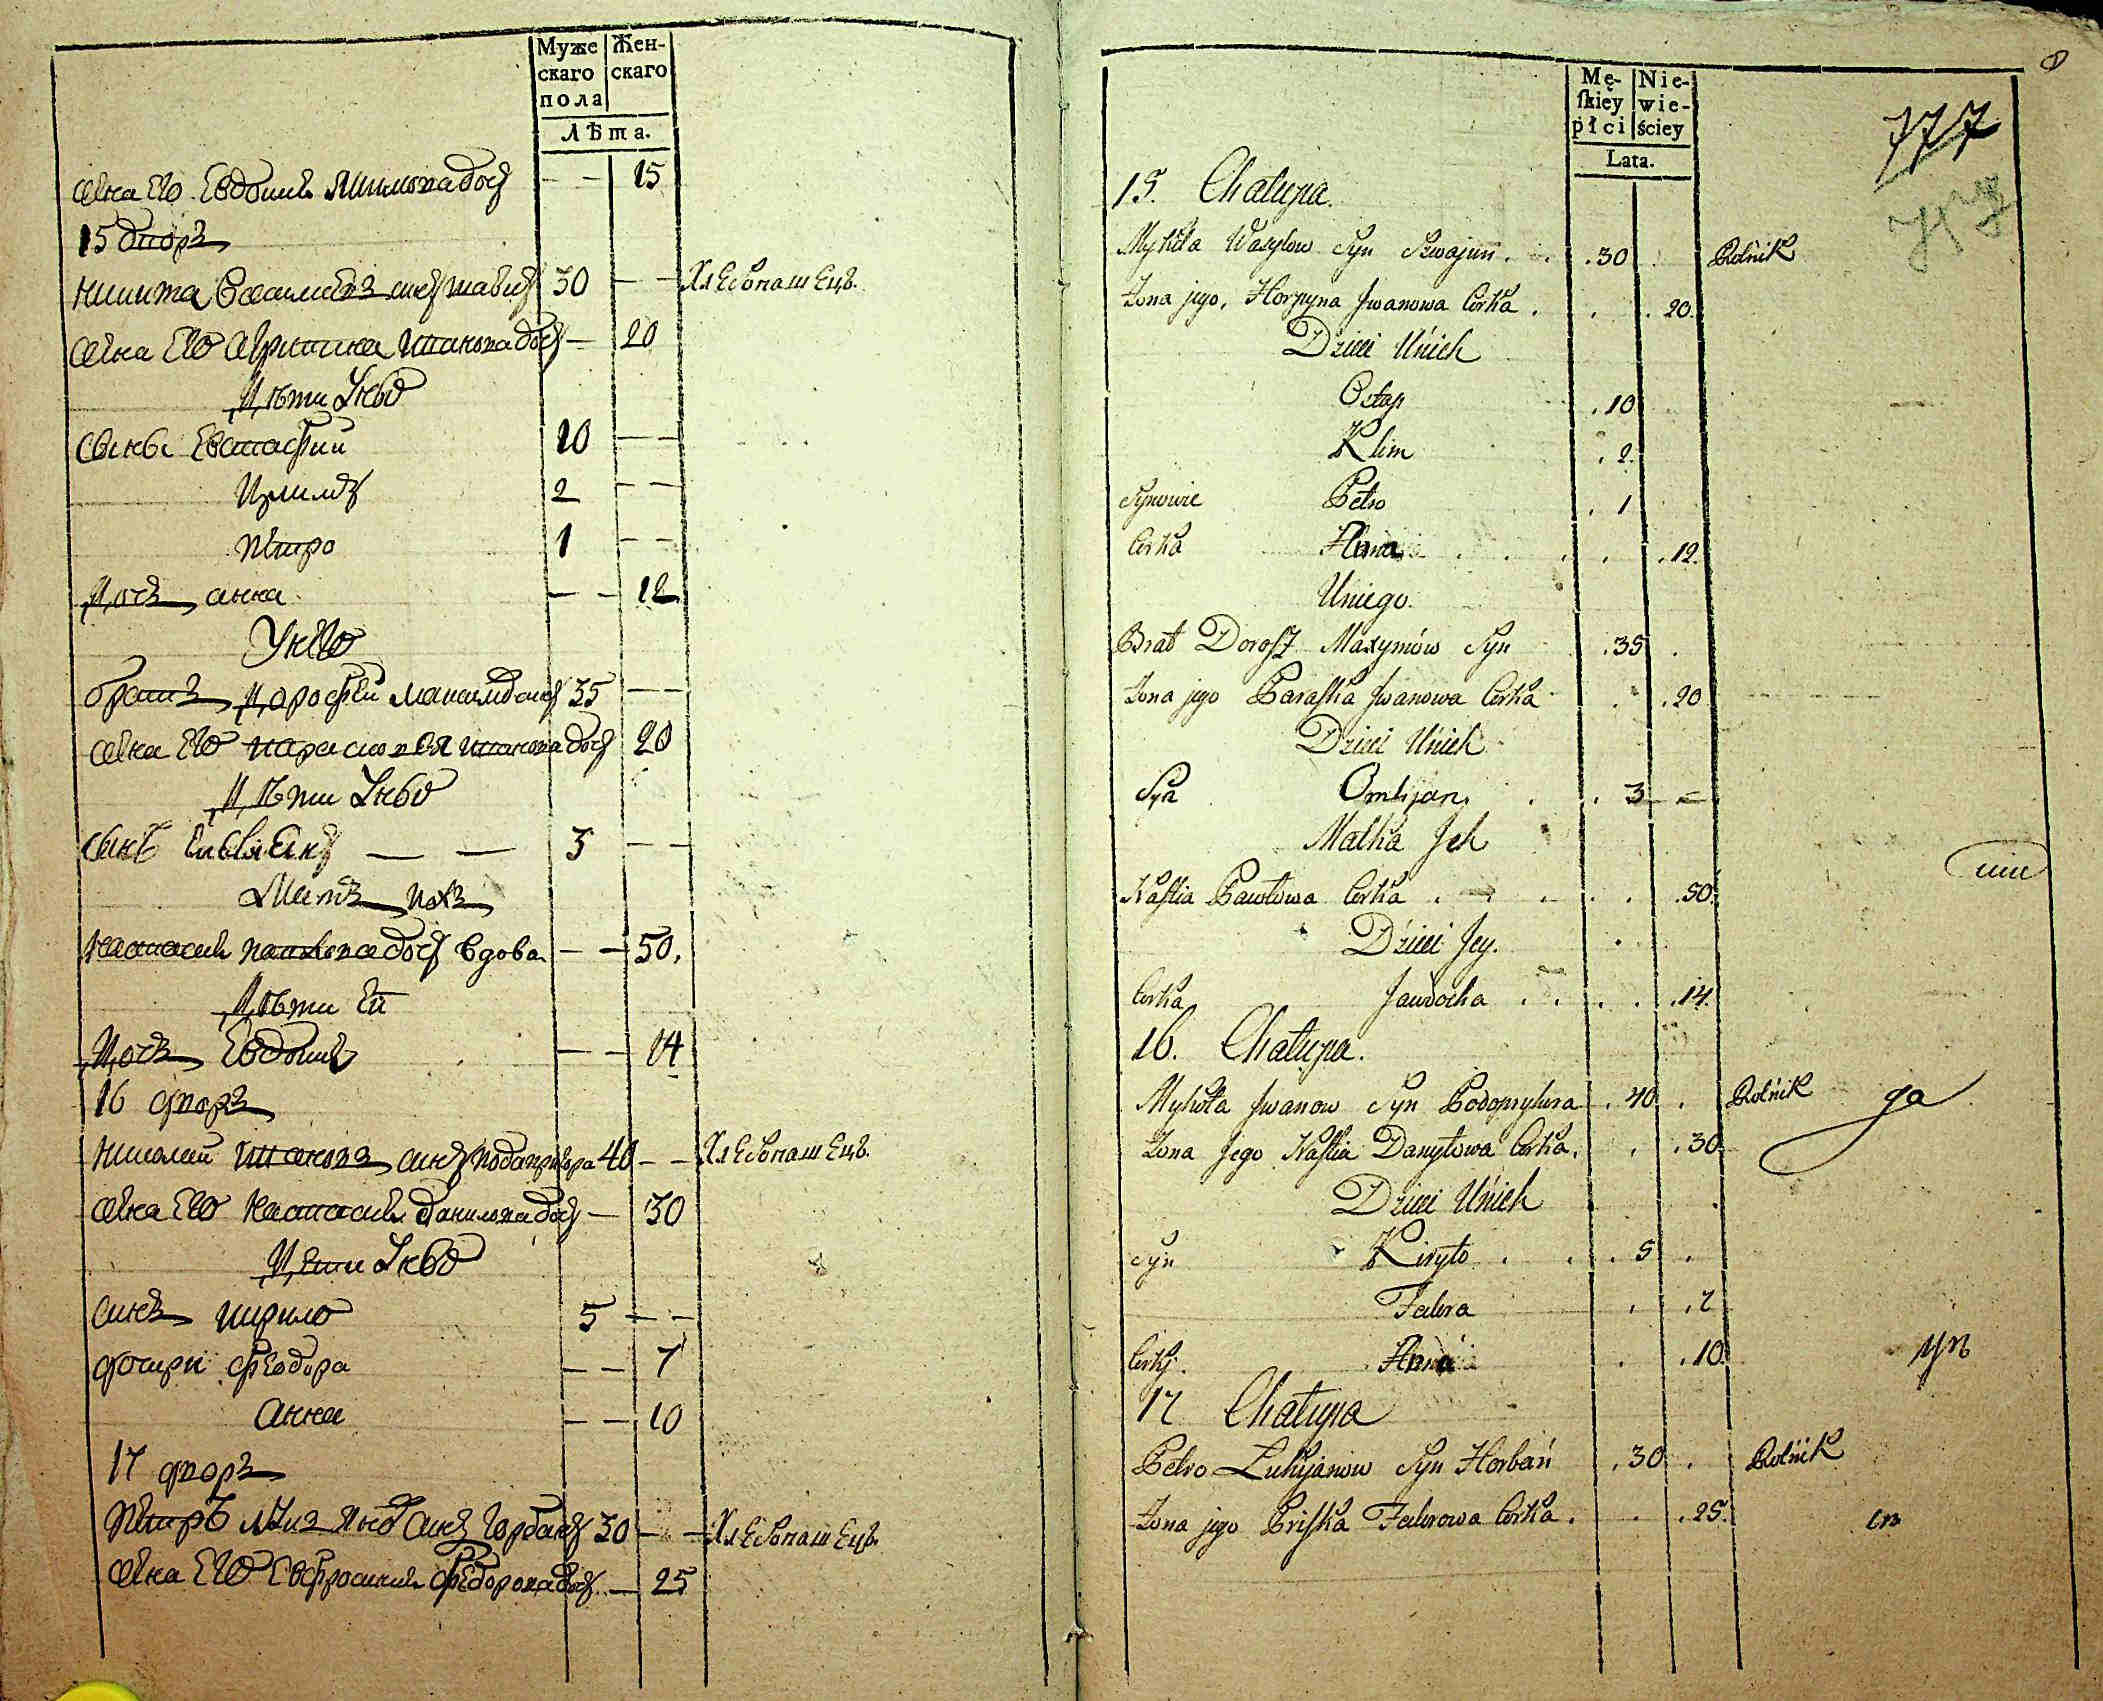 Муже Жен-
скаго скаго
пола
Лѣта.
жена его Евдокиѧ дочъ — — 15
15 дворъ
Никита Василевъ синъ 30 — — Хлебопашецъ.
жена его Иванова дочъ — 20
Дѣти ихъ
Сыны Евстафий 10 — —
Климъ 2 — —
Петро 1 — —
Дочъ анна — — 12
У него
братъ Дорофей Макимовъ синъ 35 — —
жена его параскевия Иванова дочъ 20
Дѣти ихъ
Сынъ Емелиянъ — — 3 — —
Мать ихъ
Настасия павлова дочъ вдова — — 50.
Дѣти ей
Дочъ Евдокия — — 14
16 дворъ
Николай Ивановъ синъ подопригора 40 — — Хлебопашецъ.
жена его Настасия Данилова дочъ — 30
Дети ихъ
синъ Кирило 5 — —
дочери Феодора — — 7
Анна — — 10
17 дворъ
Петръ синъ Горбанъ 30 — — Хлебопашецъ.
жена его Евфросиния Федорова дочъ — 25
Mę- Nie-
ſkiey wie-
płci ściey
Lata.
177
15. Chałupa.
Mykita Wasylow Syn . . 30 Rolnik
Żona jego, Horpyna Jwanowa Corka . . . 20.
Dzieci Unich
Ostap . 10
Klim . 2.
Synowie Petro . 1
Corka Anna . . . . . 12.
Uniego.
Brat Dorofz Maxymów Syn . 35 .
Żona jego Paraſka Jwanowa Corka . . 20
Dzieci Unich
Syn Omelijan . . 3 —
Matka Jch
Naſtia Pawłowa Corka . — . . . . 50.
Dzieci Jey.
Corka Jawdocha . . . . . 14.
16. Chałupa.
Mykoła Jwanow Syn Podopryhora . 40 . Rolnik
Żona Jego Naſtia Danyłowa Corka. . . 30
Dzieci Unich
Syn Kiryło . . . 5 .
Fedora . . 7
Corky. Anna . . 10.
17 Chałupa
Petro Lukijanow Syn Horbań . 30 . Rolnik
Żona jego Priſka Fedorowa Corka . . . 25.